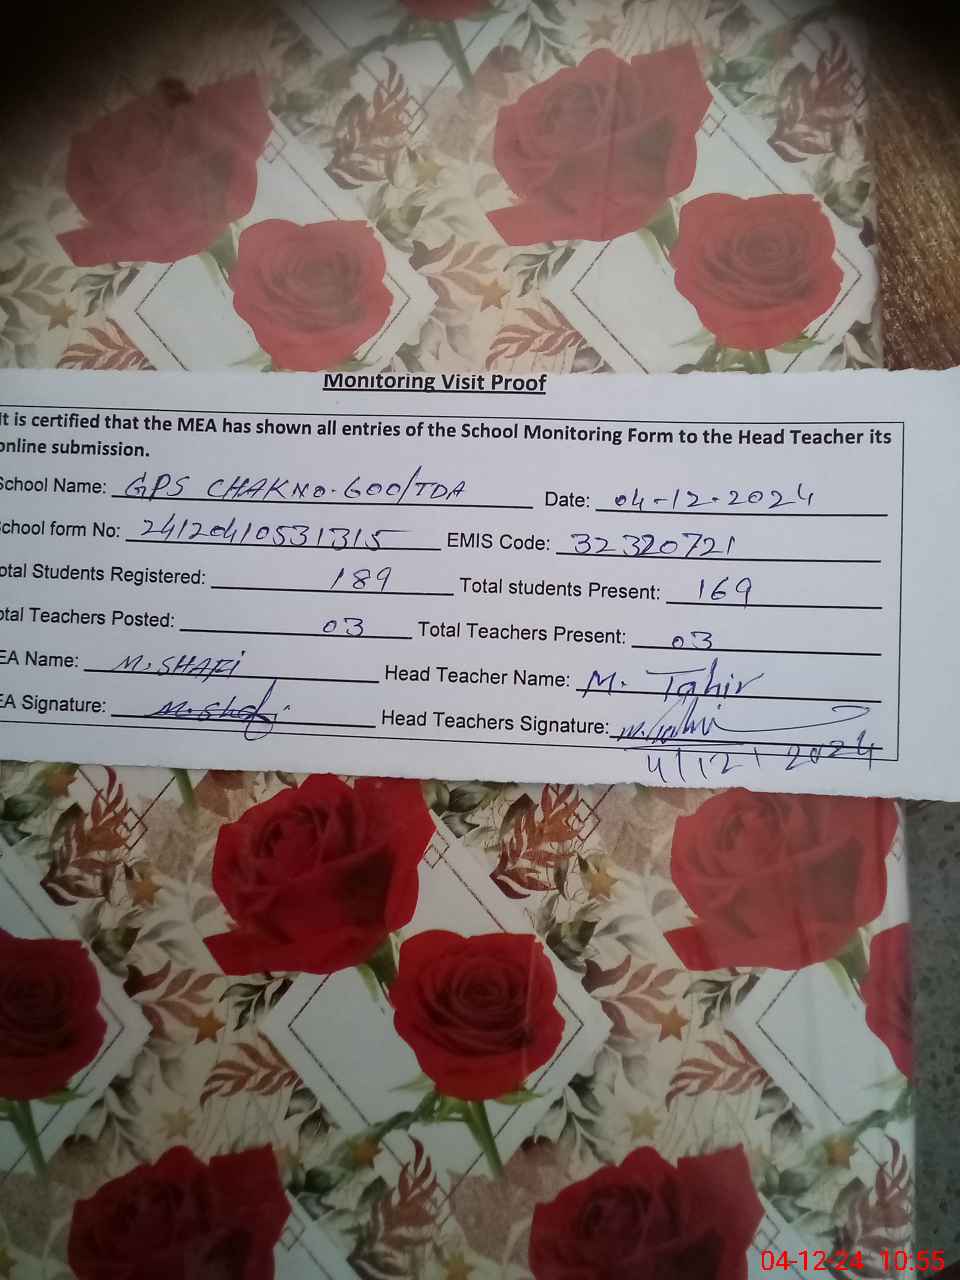 Monitoring Visit Proof
It is certified that the MEA has shown all entries of the School Monitoring Form to the Head Teacher its
online submission.
School Name: GPS CHAK NO. 600/TDA Date: 04-12-2024
School form No: 24120410531315 EMIS Code: 32320721
otal Students Registered: 189 Total students Present: 169
otal Teachers Posted: 03 Total Teachers Present: 03
EA Name: M. SHAFI Head Teacher Name: M. Tahir
EA Signature: M. Shafi Head Teachers Signature: M. Tahir
4/12/2024
04-12-24 10:55